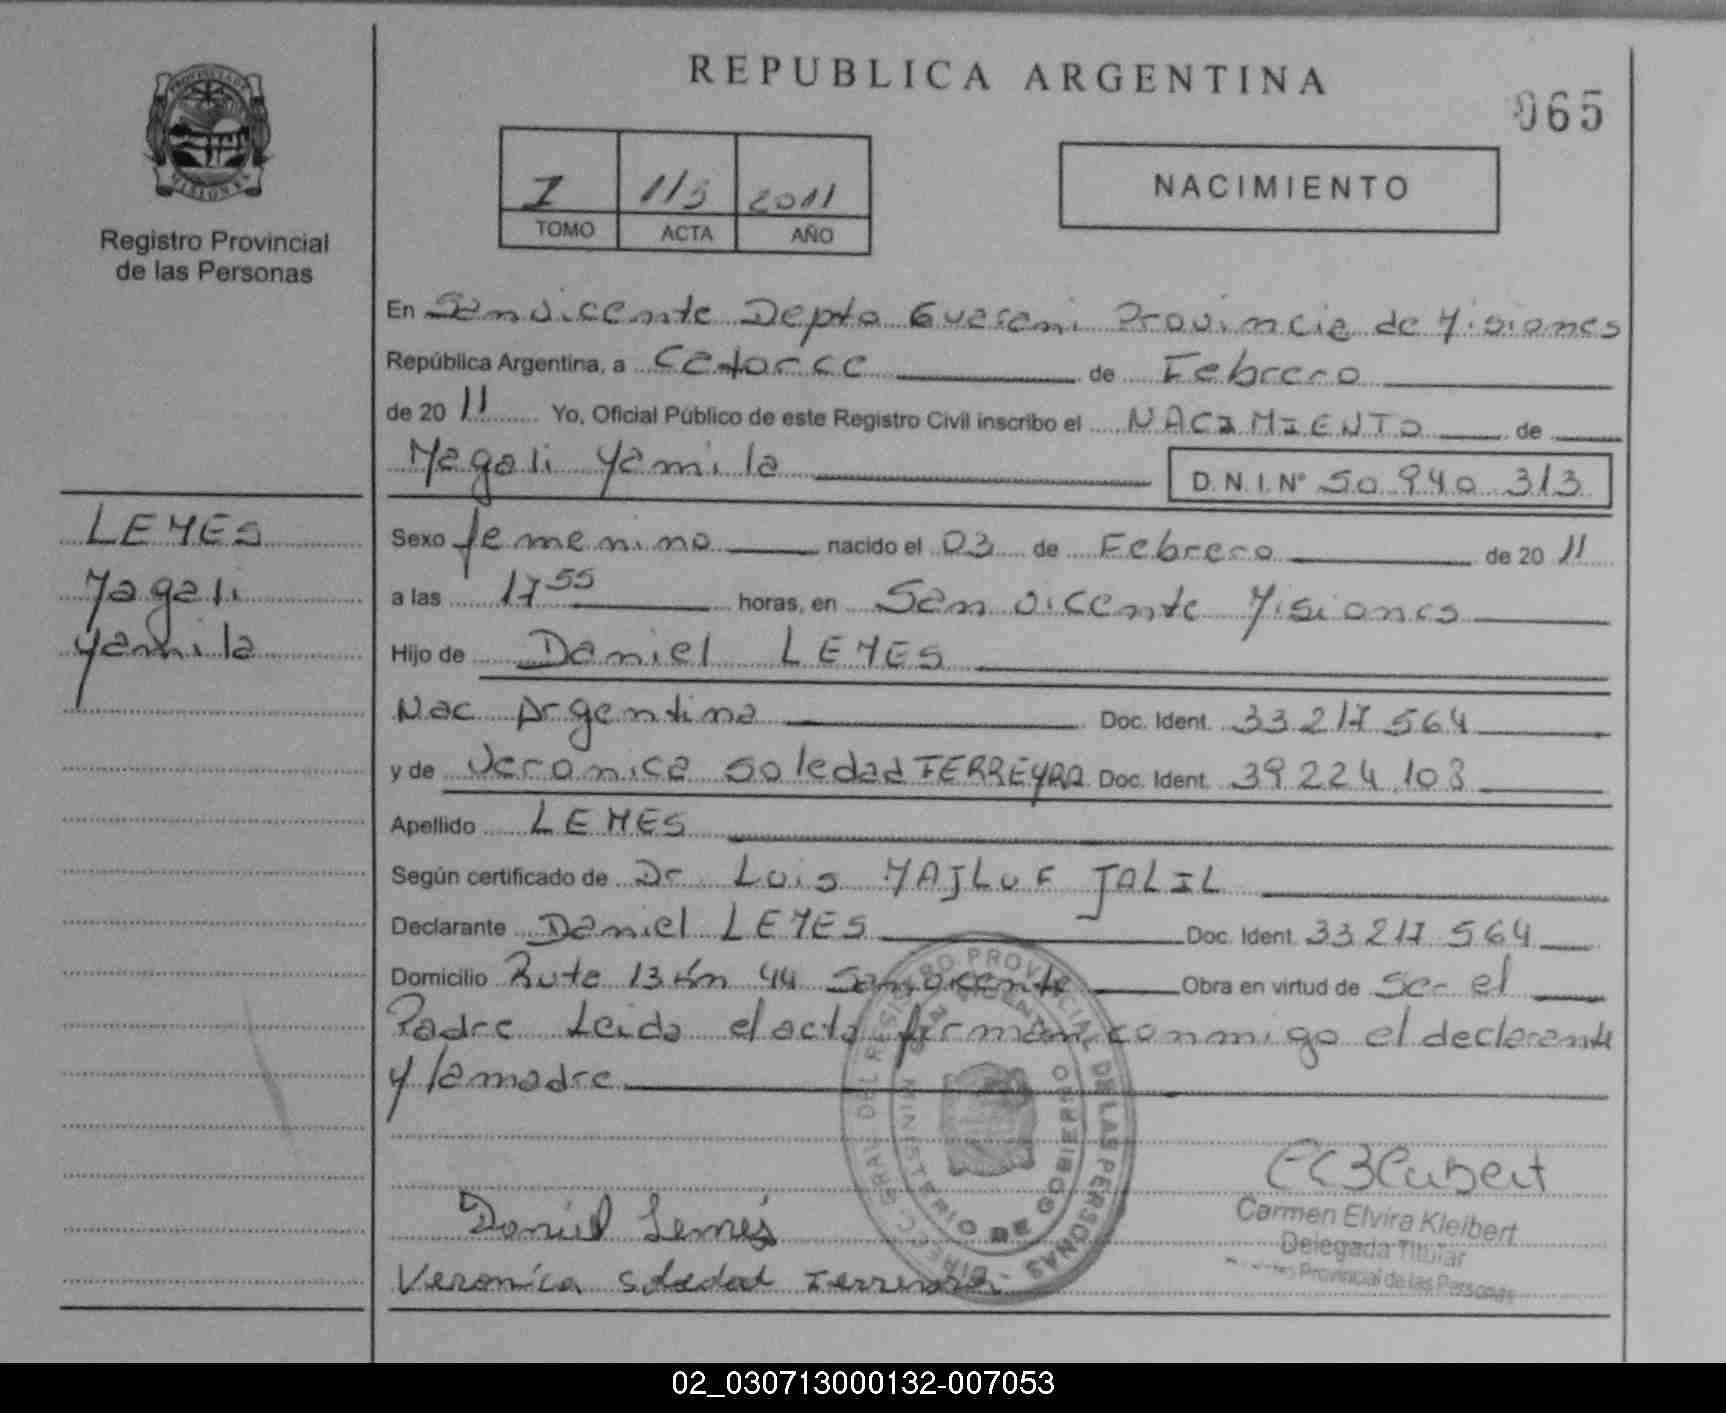 REPUBLICA ARGENTINA
065
PROVINCIA DE
MISIONES
Registro Provincial
de las Personas
I 113 2011
TOMO ACTA AÑO
NACIMIENTO
En San Vicente Depto Guarani Provincia de Misiones
República Argentina, a Catorce de Febrero
de 2011 Yo, Oficial Público de este Registro Civil inscribo el NACIMIENTO de
Magali Yamila D.N.I. Nº 50 940 313
LEMES
Magali
Yamila
Sexo femenino nacido el 03 de Febrero de 2011
a las 17 55 horas, en San Vicente Misiones
Hijo de Daniel LEMES
Nac Argentina Doc. Ident. 33 217 564
y de Veronica Soledad FERREYRA Doc. Ident. 39 224 103
Apellido LEMES
Según certificado de Dr Luis MAJLUF JALIL
Declarante Daniel LEMES Doc. Ident. 33 217 564
Domicilio Ruta 13 km 44 San Vicente Obra en virtud de Ser el
Padre Leida el acta firman conmigo el declarante
y la madre
DIRECC. GRAL. DEL REGISTRO PROVINCIAL DE LAS PERSONAS
MINISTERIO DE GOBIERNO
SAN VICENTE
Daniel Lemes
Veronica Soledad Ferreyra
Carmen Elvira Kleibert
Delegada Titular
Provincial de las Personas
02_030713000132-007053